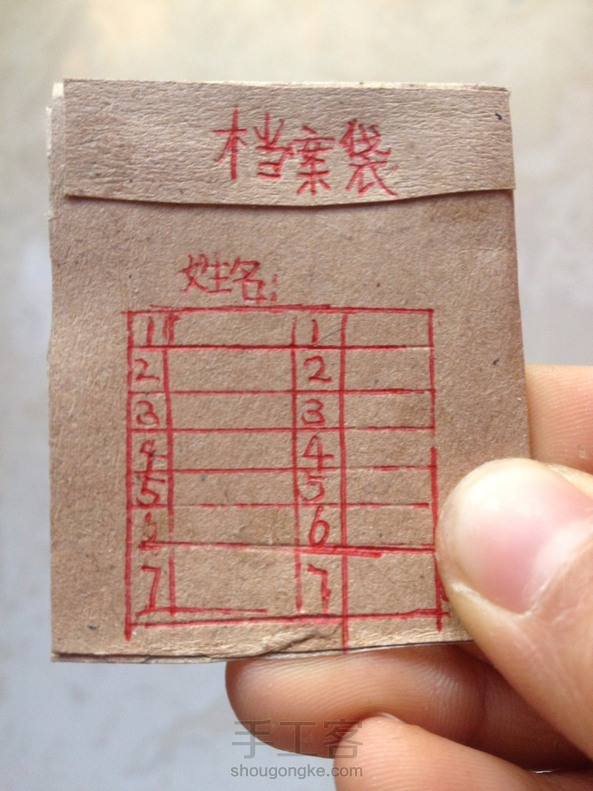 档案袋
姓名:
1 1
2 2
3 3
4 4
5 5
6
7 7
手工客
shougongke.com